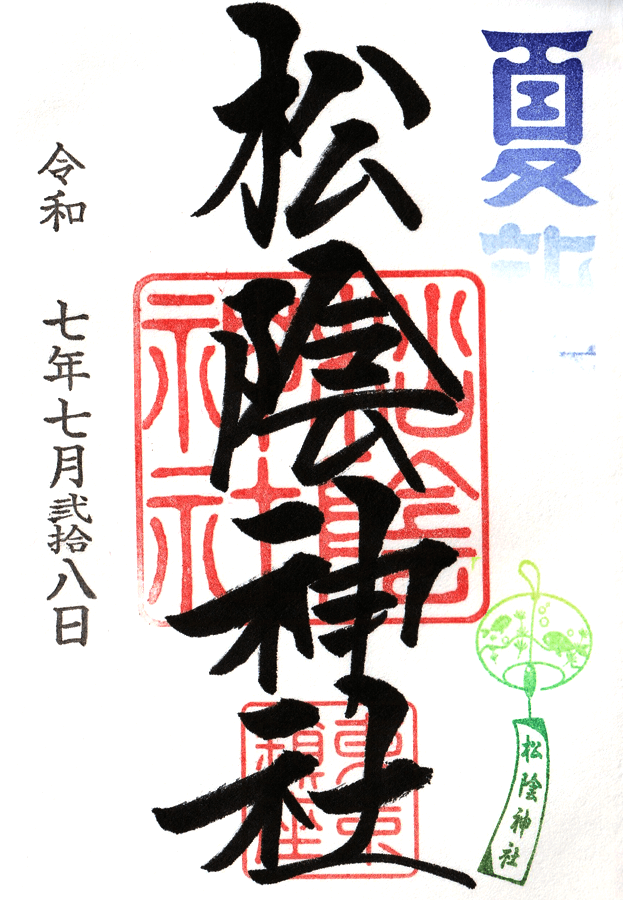 夏詣
松陰神社
松陰神社
松陰神社
東京鎮座
令和 七年七月弐拾八日